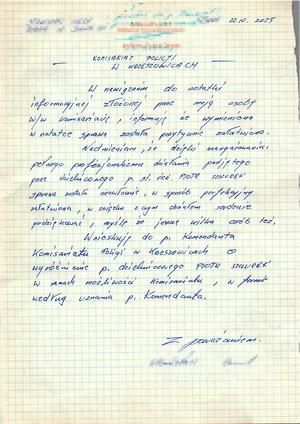 22.10.2025
KOMISARIAT POLICJI
W KRZESZOWICACH
W nawiązaniu do notatki
informacyjnej złożonej przez moją osobę
w/w komisariacie, informuję że wymieniona
w notatce sprawa została pozytywnie załatwiona.
Nadmieniam, że dzięki zaangażowaniu
pełnego profesjonalizmu działania podjętego
przez dzielnicowego p. st. PIOTR
sprawa została niezwłocznie, w sposób perfekcyjny
załatwiona, w związku z czym chciałem serdecznie
podziękować, myślę że jeszcze kilka osób też.
Wnioskuję do p. Komendanta
Komisariatu Policji w Krzeszowicach o
wyróżnienie p. dzielnicowego PIOTR
w ramach możliwości Komisariatu, w formie
według uznania p. Komendanta.
Z poważaniem.